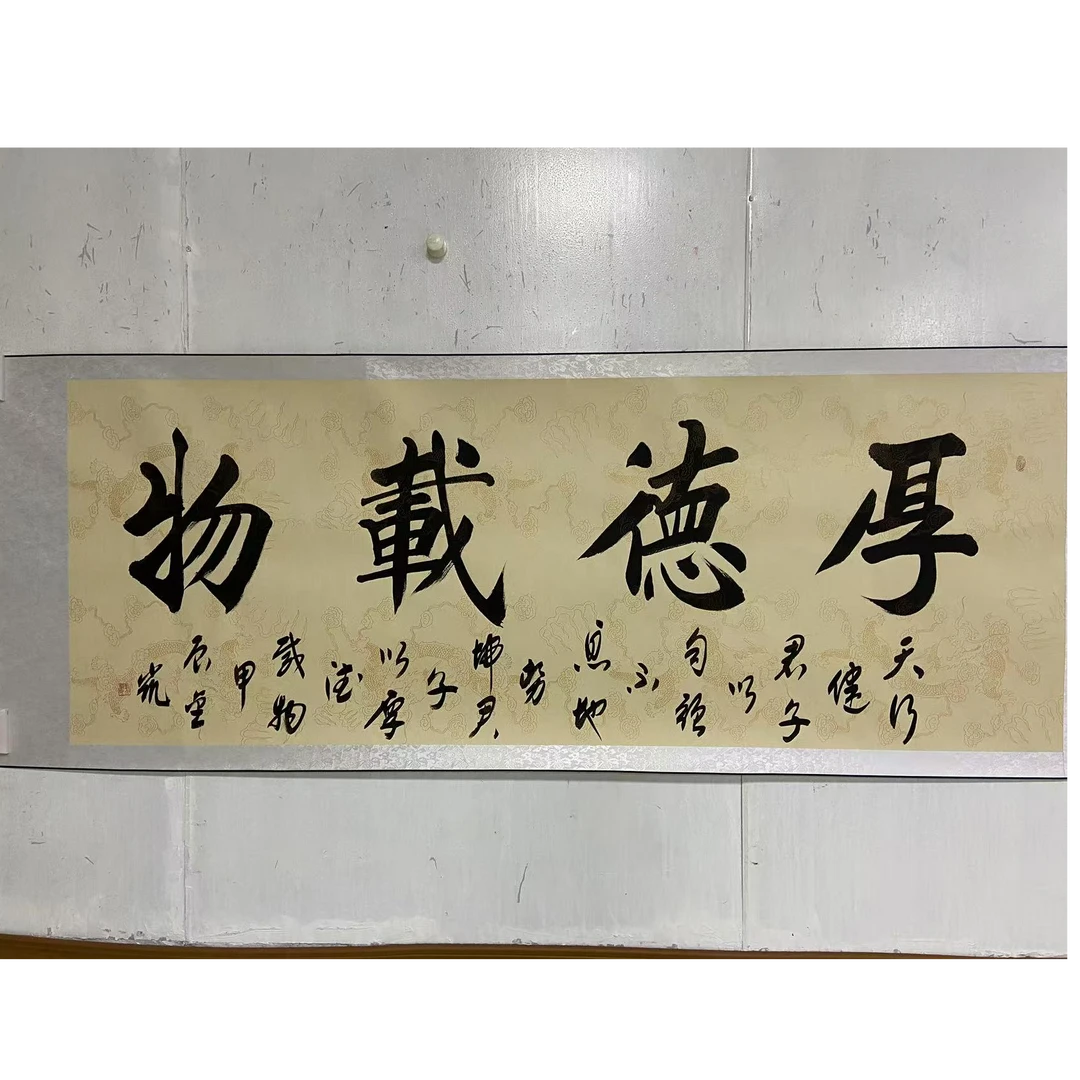 厚德載物
天行
健
君子
以
自強
不
息地
势
坤君
子
以厚
德
載物
甲
辰